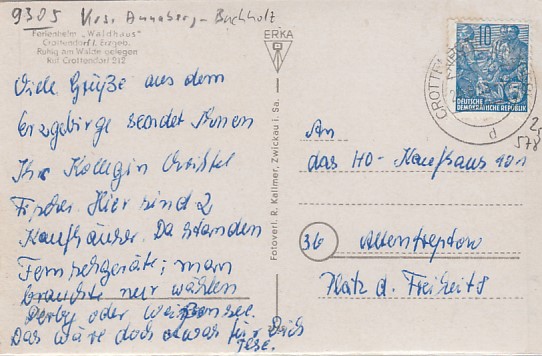 9305 Krs. Annaberg-Buchholz
Ferienheim „Waldhaus"
Crottendorf i. Erzgeb.
Ruhig am Walde gelegen
Ruf Crottendorf 212
Viele Grüße aus dem
Erzgebirge sendet Ihnen
Ihre Kollegin Christel
Fischer. Hier sind 2
Kaufhäuser. Da standen
Fernsehgeräte; man
brauchte nur wählen
Derby oder Weißensee.
Das wäre doch etwas für Dich
ERKA
Fotoverl. R. Kallmer, Zwickau i. Sa.
10
DEUTSCHE
DEMOKRATISCHE REPUBLIK
5
CROTTEN
d
578
An
das HO-Kaufhaus 401
36 Altentreptow
Platz d. Freiheit 8